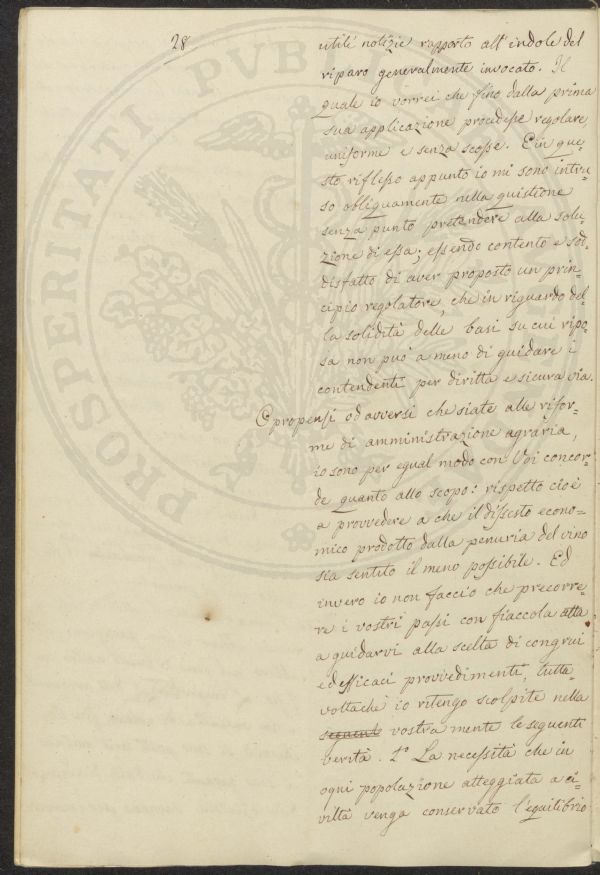 28
utili notizie rapporto all'indole del
riparo generalmente invocato. Il
quale io vorrei che fino dalla prima
sua applicazione procedesse regolare,
uniforme e senza scosse. E in que=
sto riflesso appunto io mi sono intru=
so obliquamente nella quistione
senza punto pretendere alla solu=
zione di essa; essendo contento e sod=
disfatto di aver proposto un prin=
cipio regolatore, che in riguardo del=
la solidità delle basi su cui ripo=
sa non può a meno di guidare i
contendenti per diritta e sicura via.
O propensi od avversi che siate alle rifor=
me di amministrazione agraria,
io sono per egual modo con Voi concor=
de quanto allo scopo: rispetto cioè
a provvedere a che il dissesto econo=
mico prodotto dalla penuria del vino
sia sentito il meno possibile. Ed
invero io non faccio che precorre=
re i vostri passi con fiaccola atta
a guidarvi alla scelta di congrui
ed efficaci provvedimenti, tutta=
voltachè io ritengo scolpite nella
vostra mente le seguenti
verità. 1° La necessità che in
ogni popolazione atteggiata a ci=
viltà venga conservato l'equilibrio
PROSPERITATI PUBLICAE